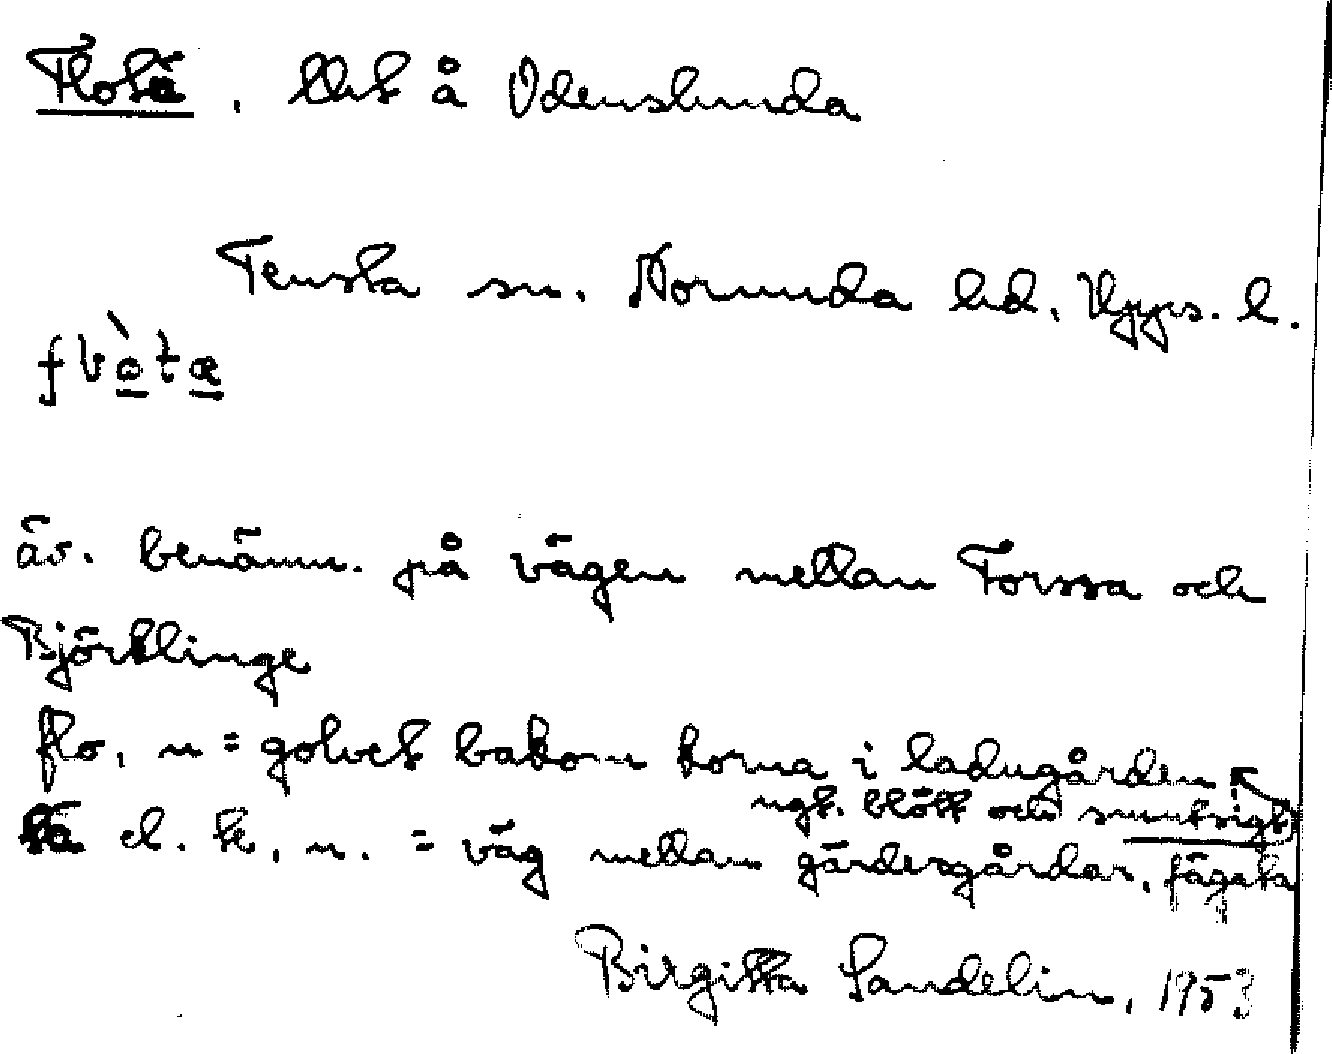 Flotä, Utt å Odenslunda
Tensta sn. Norunda hd, Upps. l.
flò̱tä̱
äv. benämn. på vägen mellan Forssa och
Björklinge
flo, n = golvet bakom korna i ladugården
ngt. blött och smutsigt
tä el. te, n. = väg mellan gärdesgårdar, fägata
Birgitta Sandelin, 1953